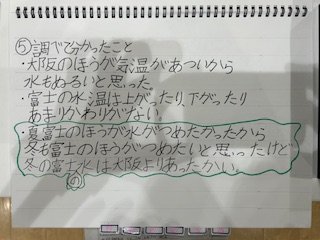 ⑤調べて分かったこと
・大阪のほうが気温があついから
水もぬるいと思った。
・富士の水温は上がったり、下がったり
あまりかわりがない。
・夏富士のほうが水がつめたかったから
冬も富士のほうがつめたいと思ったけど
冬の富士水は大阪よりあったかい。
の